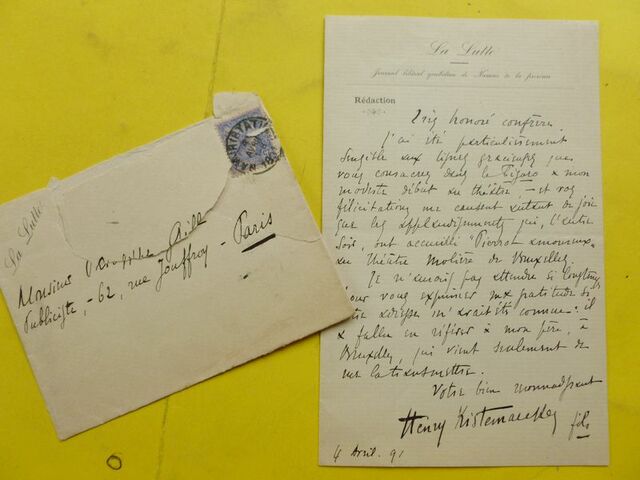 La Lutte
Journal libéral quotidien de Namur et de la province
Rédaction
Très honoré confrère,
J'ai été particulièrement
sensible aux lignes gracieuses que
vous consacrez dans le Figaro à mon
modeste début au théâtre — et vos
félicitations me causent autant de joie
que les applaudissements qui, l'autre
soir, ont accueilli "Pierrot amoureux"
au théâtre Molière de Bruxelles.
Je n'aurais pas attendu si longtemps
pour vous exprimer ma gratitude si
votre adresse m'avait été connue: il
a fallu en référer à mon père, à
Bruxelles, qui vient seulement de
me la transmettre.
Votre bien reconnaissant
Henry Kistemaeckers
fils
4 Avril. 91
La Lutte
Monsieur
Publiciste, - 62, rue Jouffroy - Paris